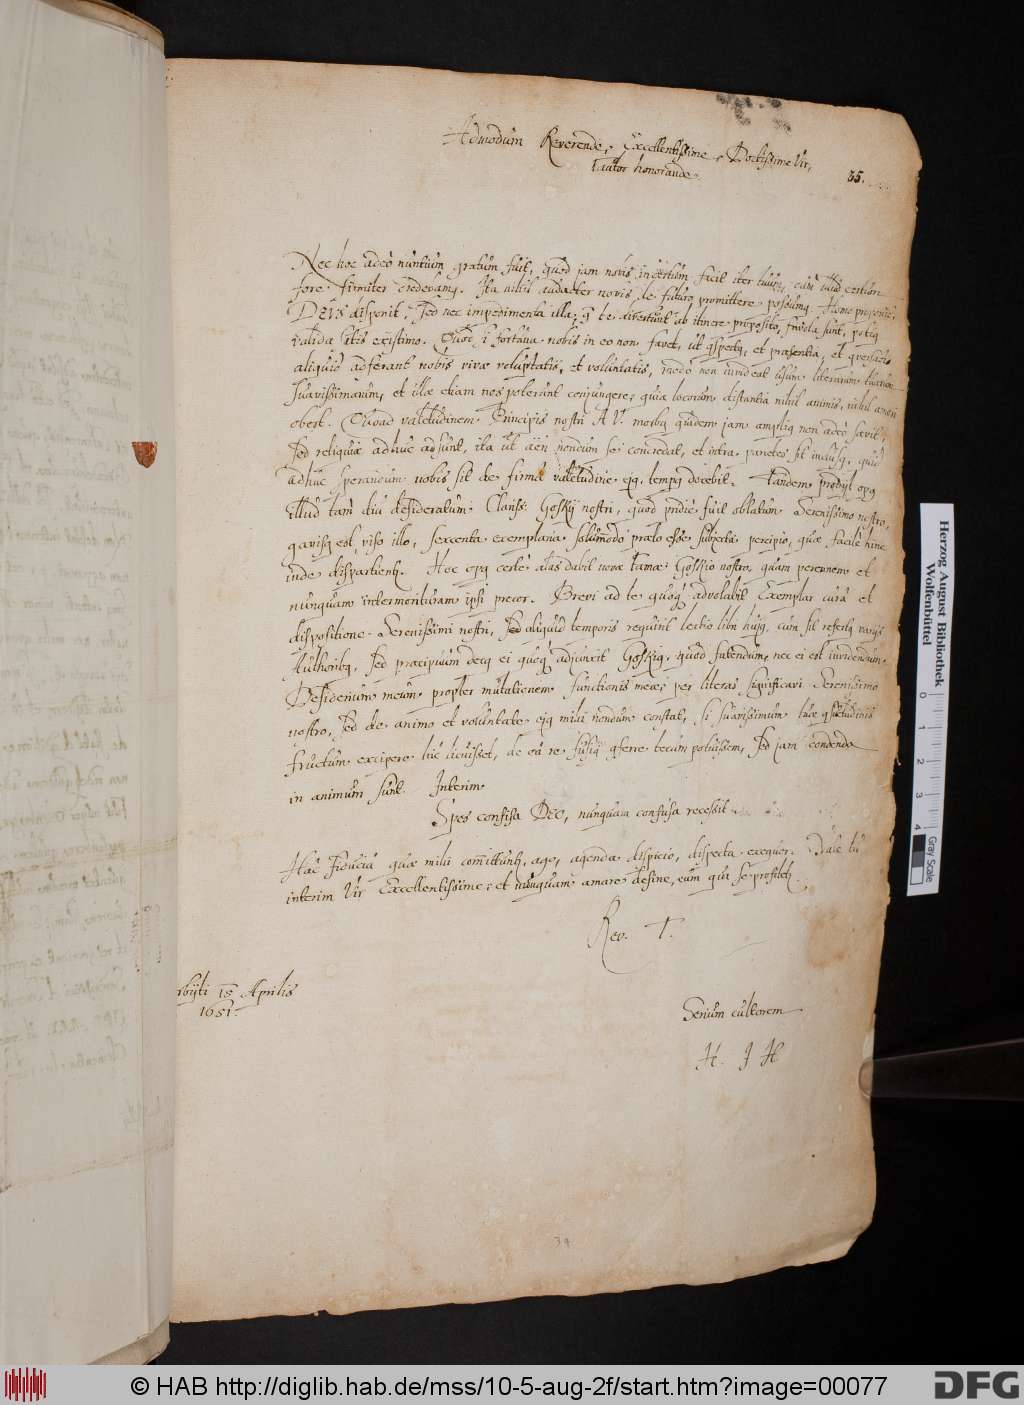 Admodum Reverende, Excellentissime, Doctissime Vir,
Fautor honorande.
35.
Nec hoc adeò nuntium gratum fuit, quod jam nobis incertum facit iter tuum, cum illud certum
fore firmiter credebamq. Ita nihil audacter nobis de futuro promittere possumq. Homo proponit,
Deus disponit, sed nec impedimenta illa, q te divertunt ab itinere proposito, frivola sunt, potiq
valida satis existimo. Quod si fortuna nobis in eo non favet, ut q̃spectq, et præsentia, et q̃gressatio
aliquid adferant nobis vivæ voluptatis, et voluntatis, modò non invideat usum literarum tuarum
suavissimarum, et illæ etiam nos poterunt conjungere, quia locorum distantia nihil animis, nihil amori
obest. Quoad valetudinem Principis nostri A V. morbq quidem jam ampliq non adeò sævit,
sed reliquiæ adhuc adsunt, ita ut aëri nondum se concredat, et intra parietes sit inclusq, quid
adhuc sperandum nobis sit de firmâ valetudine ejq, tempq docebit. Tandem prodijt opq
illud tam diu desideratum Clariss: Goskij nostri, quod pridie fuit oblatum Serenissimo nostro,
gavisq est, viso illo, sexcenta exemplaria solummodò prælo esse subjecta percipio, quæ facilè hinc
inde dispartientr. Hoc opq certè alas dabit novæ famæ Goskio nostro, quam perennem et
nunquam intermorituram ipsi precor. Brevi ad te quoq advolabit Exemplar curâ et
dispositione Serenissimi nostri, sed aliquid temporis requirit lectio libri hujq, cum sit refertq varijs
Authoribq, sed præcipuum decq ei quoq adjunxit Goskiq, quod fatendum, nec ei est invidendum.
Desiderium meum propter mutationem functionis meæ, per literas significavi Serenissimo
nostro, sed de animo et voluntate ejq mihi nondum constat, si suavissimum tuæ q̃suetudinis
fructum excipere hîc licuisset, de eâ re fusiq q̃ferre tecum potuissem, sed jam condenda
in animum sunt. Interim
Spes confisa Deo, nunquam confusa recessit
Hac fiduciâ quæ mihi com̄ittuntr, ago, agenda dispicio, dispecta exequor. Vale tu
interim Vir Excellentissime, et nunquam amare desine, eum qui se profitetr
Rev. T.
15 Aprilis
1651.
Serium cultorem
H. J H
34
Herzog August Bibliothek
Wolfenbüttel
0 1 2 3 4
Gray Scale
© HAB http://diglib.hab.de/mss/10-5-aug-2f/start.htm?image=00077
DFG